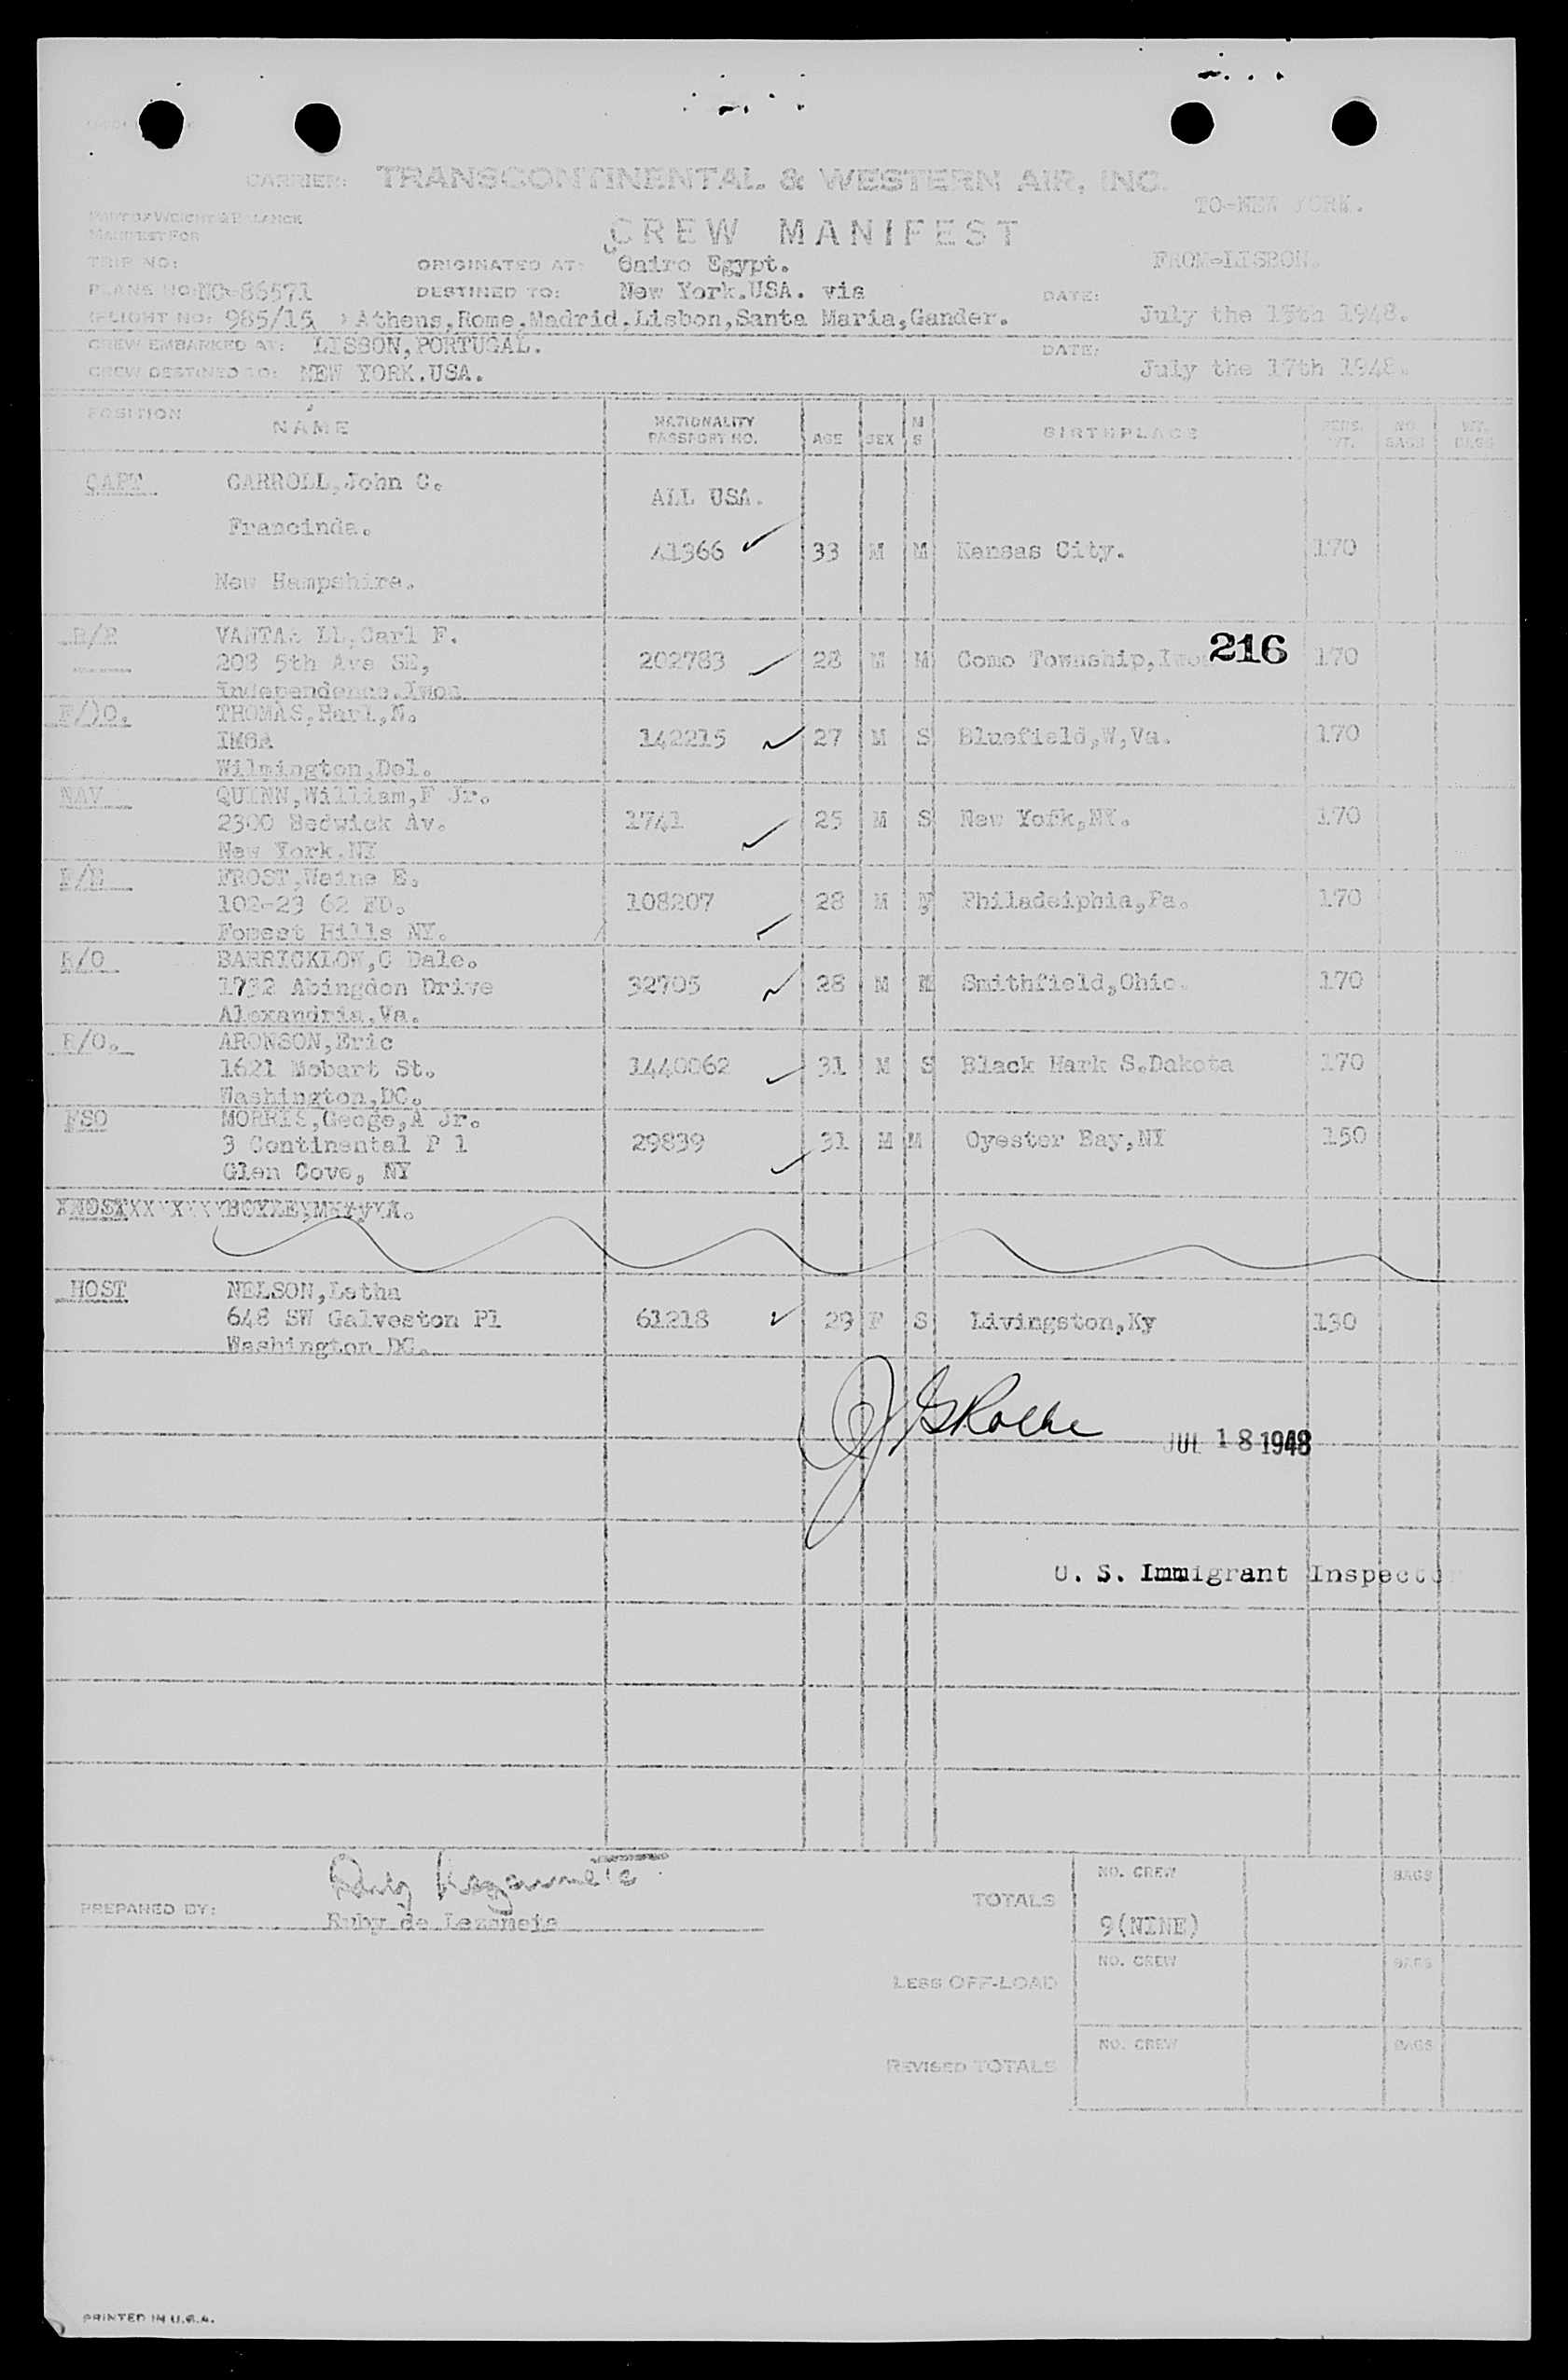 CARRIER: TRANSCONTINENTAL & WESTERN AIR, INC.
TO-NEW YORK.
PART OF WEIGHT & BALANCE
MANIFEST FOR
CREW MANIFEST
TRIP NO: ORIGINATED AT: Cairo Egypt. FROM-LISBON.
PLANE NO: NC-86571 DESTINED TO: New York.USA. via DATE:
FLIGHT NO: 985/15 Athens,Rome,Madrid,Lisbon,Santa Maria,Gander. July the 15th 1948.
CREW EMBARKED AT: LISBON,PORTUGAL. DATE:
CREW DESTINED TO: NEW YORK.USA. July the 17th 1948.
POSITION NAME NATIONALITY PASSPORT NO. AGE SEX M S BIRTHPLACE PERS. WT. NO BAGS WT. BAGS
CAPT CARROLL,John C. ALL USA.
Francinda.
A1366 33 M M Kansas City. 170
New Hampshire.
VANTA LL,Carl F.
208 5th Ave SE, 202783 28 M M Como Township, 216 170
independence.Iwoa
F/)O. THOMAS,Harl,N.
IMSA 142215 27 M S Bluefield,W,Va. 170
Wilmington,Del.
NAV QUINN,William,F Jr.
2300 Sedwick Av. 1741 25 M S New York,NY. 170
New York.NY
F/E FROST,Waine E.
102-23 62 RD. 108207 28 M Philadelphia,Pa. 170
Forest Hills NY.
R/O BARRICKLOW,C Dale.
1732 Abingdon Drive 32705 28 M M Smithfield,Ohio. 170
Alexandria,Va.
R/O. ARONSON,Eric
1621 Mobart St. 1440062 31 M S Black Hark S.Dakota 170
Washington,DC.
FSO MORRIS,Geoge,A Jr.
3 Continental P l 29839 31 M M Oyester Bay,NY 150
Glen Cove, NY
HOST NELSON,Letha
648 SW Galveston Pl 61218 29 F S Livingston,Ky 130
Washington DC.
JUL 18 1948
U. S. Immigrant Inspector
PREPARED BY: Ruby de Lezameis
TOTALS NO. CREW BAGS
9(NINE)
LESS OFF-LOAD NO. CREW BAGS
REVISED TOTALS NO. CREW BAGS
PRINTED IN U.S.A.